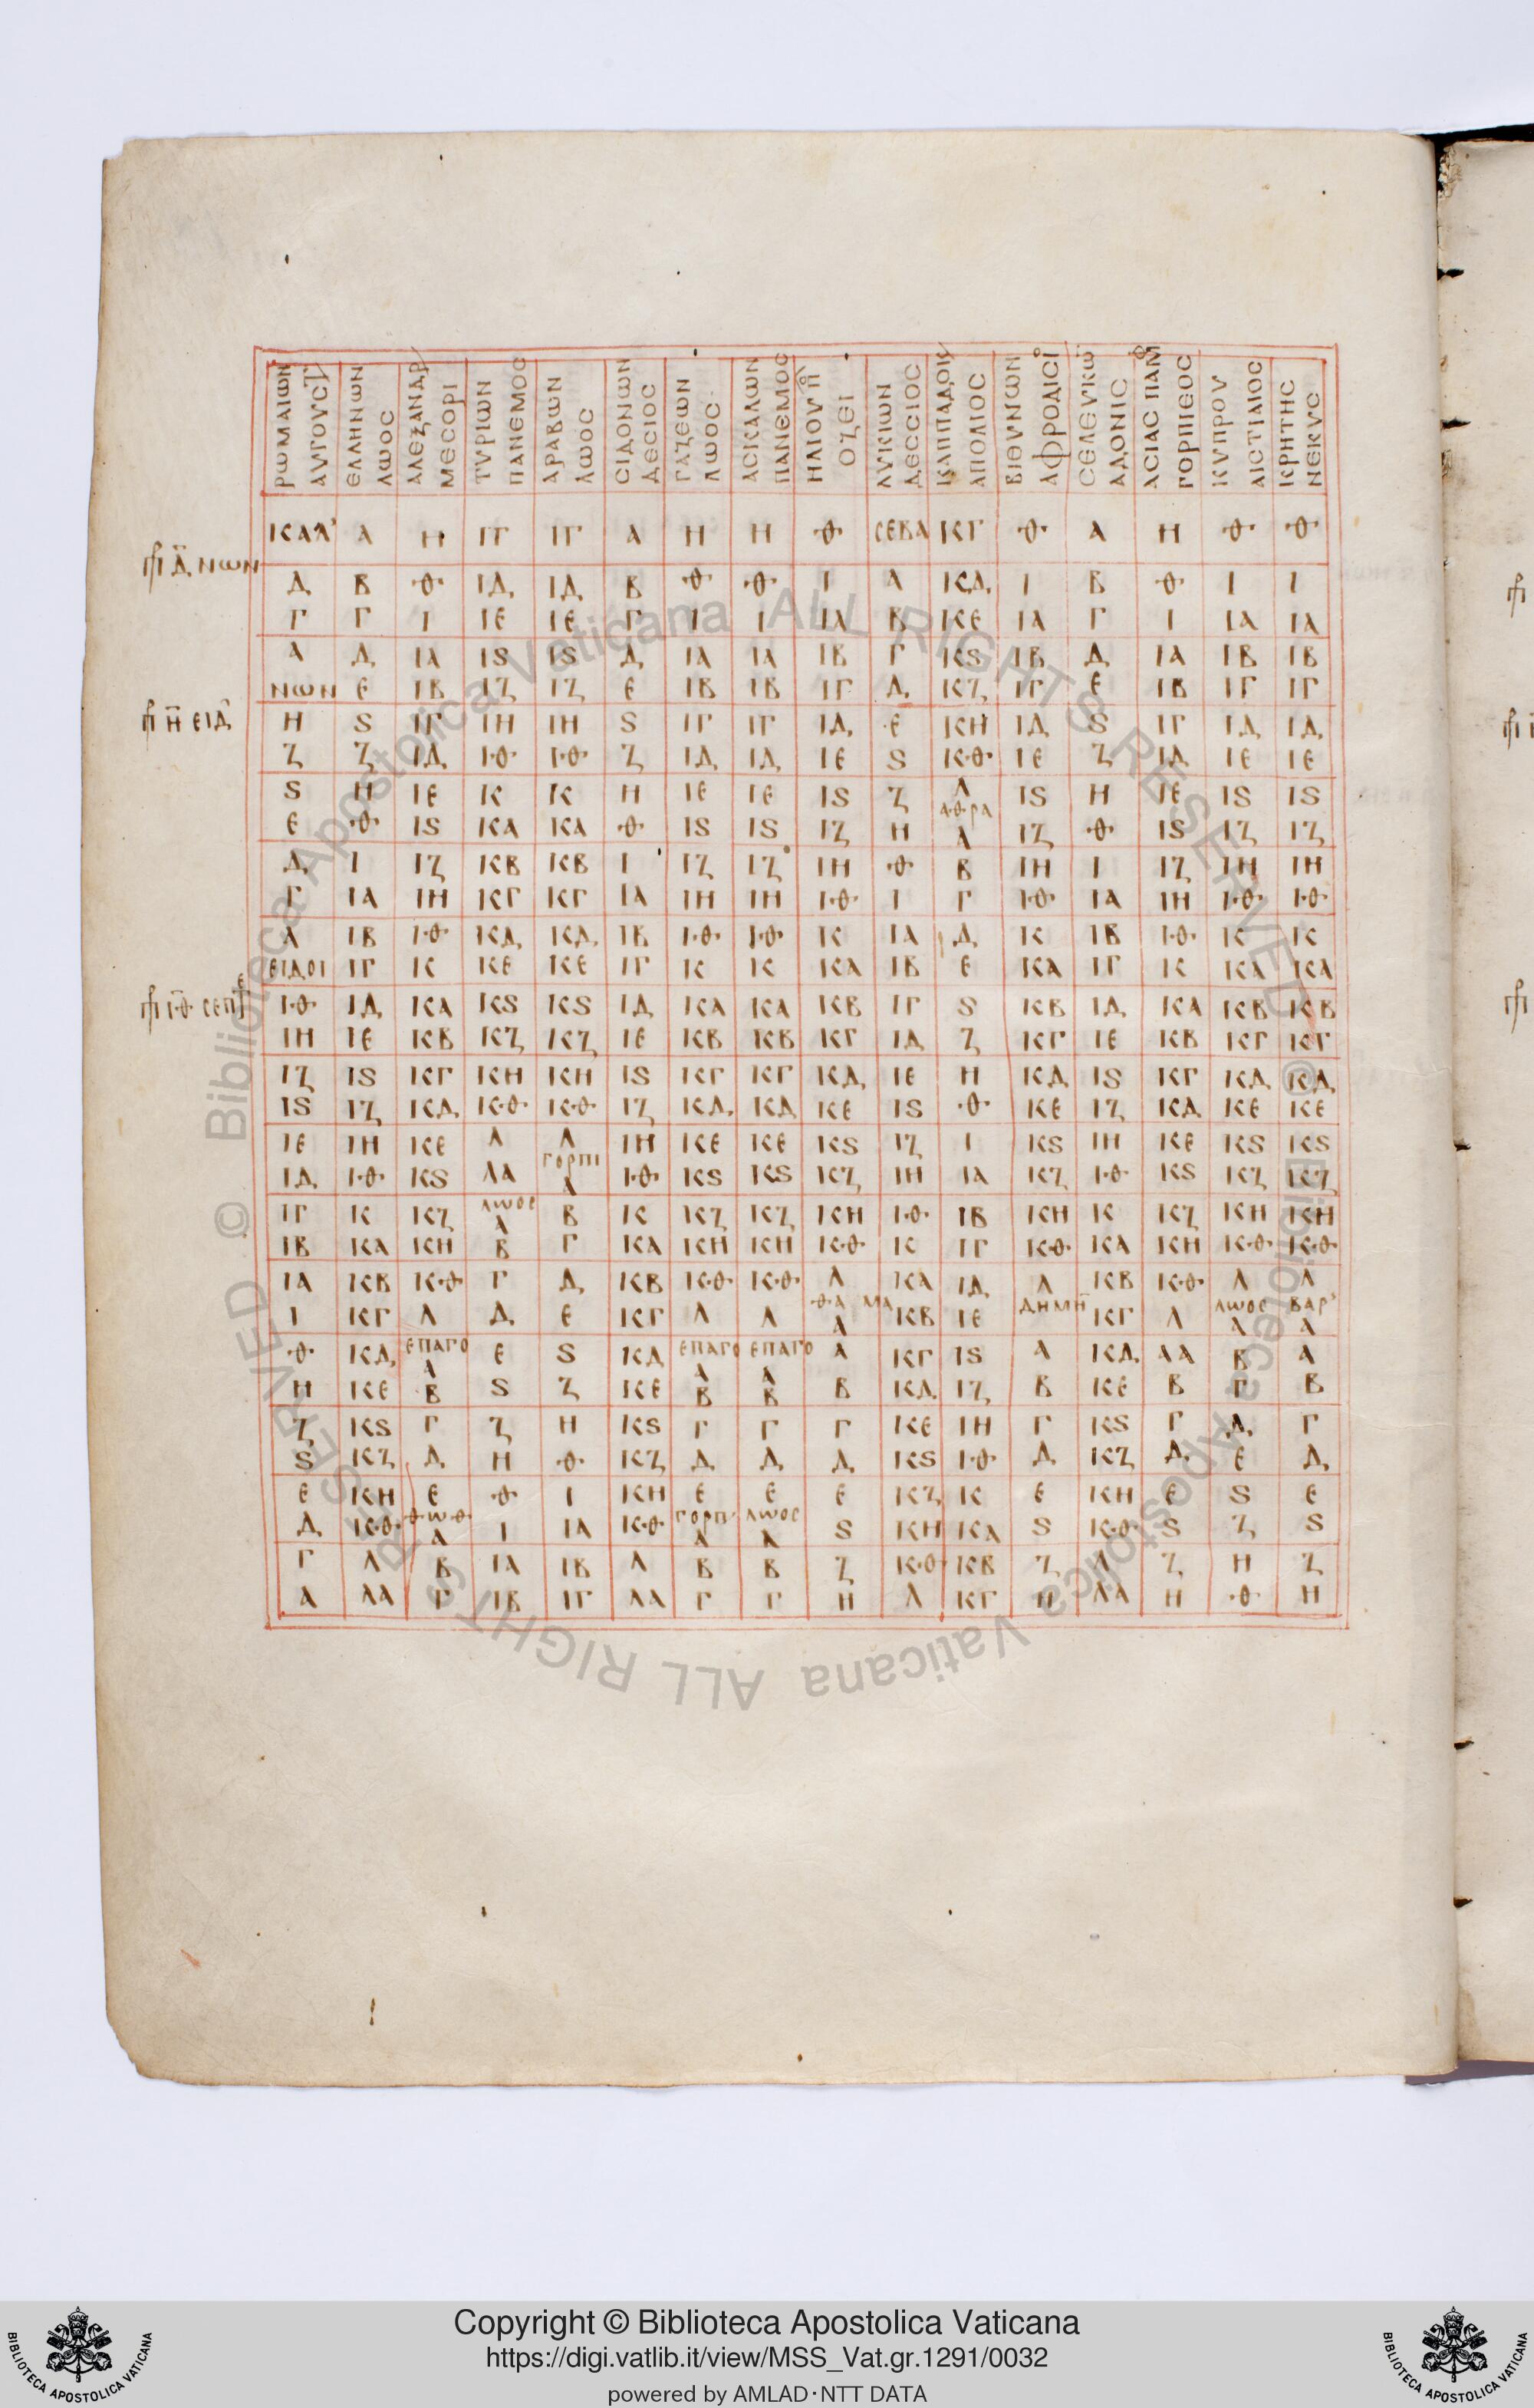 ΡΩΜΑΙΩΝ ΑΥΓΟΥϹΤ ΕΛΛΗΝΩΝ ΛΩΟϹ ΑΛΕΞΑΝΔΡ ΜΕϹΟΡΙ ΤΥΡΙΩΝ ΠΑΝΕΜΟϹ ΑΡΑΒΩΝ ΛΩΟϹ ϹΙΔΟΝΩΝ ΔΕϹΙΟϹ ΓΑΖΕΩΝ ΛΩΟϹ ΑϹΚΑΛΩΝ ΠΑΝΕΜΟϹ ΗΛΙΟΥΠ ΟΖΕΙ ΛΥΚΙΩΝ ΔΕϹϹΙΟϹ ΚΑΠΠΑΔΟΚ ΑΠΟΛΙΟϹ ΒΙΘΥΝΩΝ ΑΦΡΟΔΙϹΙ ϹΕΛΕΥΚΩ ΑΔΟΝΙϹ ΑϹΙΑϹ ΠΑΜ ΓΟΡΠΙΕΟϹ ΚΥΠΡΟΥ ΑΙϹΤΙΛΙΟϹ ΚΡΗΤΗϹ ΝΕΚΥϹ
ΚΑΛ Α Η ΙΓ ΙΓ Α Η Η Θ ϹΕΒΑ ΚΓ Θ Α Η Θ Θ
Δ ΝΩΝ
Δ Β Θ ΙΔ ΙΔ Β Θ Θ Ι Α ΚΔ Ι Β Θ Ι Ι
Γ Γ Ι ΙΕ ΙΕ Γ Ι Ι ΙΑ Β ΚΕ ΙΑ Γ Ι ΙΑ ΙΑ
Α Δ ΙΑ ΙS ΙS Δ ΙΑ ΙΑ ΙΒ Γ ΚS ΙΒ Δ ΙΑ ΙΒ ΙΒ
ΝΩΝ Ε ΙΒ ΙΖ ΙΖ Ε ΙΒ ΙΒ ΙΓ Δ ΚΖ ΙΓ Ε ΙΒ ΙΓ ΙΓ
Η ΕΙΔ
Η S ΙΓ ΙΗ ΙΗ S ΙΓ ΙΓ ΙΔ Ε ΚΗ ΙΔ S ΙΓ ΙΔ ΙΔ
Ζ Ζ ΙΔ ΙΘ ΙΘ Ζ ΙΔ ΙΔ ΙΕ S ΚΘ ΙΕ Ζ ΙΔ ΙΕ ΙΕ
S Η ΙΕ Κ Κ Η ΙΕ ΙΕ ΙS Ζ Λ ΙS Η ΙΕ ΙS ΙS
Ε Θ ΙS ΚΑ ΚΑ Θ ΙS ΙS ΙΖ Η ΑΘΡΑ Α ΙΖ Θ ΙS ΙΖ ΙΖ
Δ Ι ΙΖ ΚΒ ΚΒ Ι ΙΖ ΙΖ ΙΗ Θ Β ΙΗ Ι ΙΖ ΙΗ ΙΗ
Γ ΙΑ ΙΗ ΚΓ ΚΓ ΙΑ ΙΗ ΙΗ ΙΘ Ι Γ ΙΘ ΙΑ ΙΗ ΙΘ ΙΘ
Α ΙΒ ΙΘ ΚΔ ΚΔ ΙΒ ΙΘ ΙΘ Κ ΙΑ Δ Κ ΙΒ ΙΘ Κ Κ
ΕΙΔΟΙ ΙΓ Κ ΚΕ ΚΕ ΙΓ Κ Κ ΚΑ ΙΒ Ε ΚΑ ΙΓ Κ ΚΑ ΚΑ
ΙΘ ϹΕΠΤ
ΙΘ ΙΔ ΚΑ ΚS ΚS ΙΔ ΚΑ ΚΑ ΚΒ ΙΓ S ΚΒ ΙΔ ΚΑ ΚΒ ΚΒ
ΙΗ ΙΕ ΚΒ ΚΖ ΚΖ ΙΕ ΚΒ ΚΒ ΚΓ ΙΔ Ζ ΚΓ ΙΕ ΚΒ ΚΓ ΚΓ
ΙΖ ΙS ΚΓ ΚΗ ΚΗ ΙS ΚΓ ΚΓ ΚΔ ΙΕ Η ΚΔ ΙS ΚΓ ΚΔ ΚΔ
ΙS ΙΖ ΚΔ ΚΘ ΚΘ ΙΖ ΚΔ ΚΔ ΚΕ ΙS Θ ΚΕ ΙΖ ΚΔ ΚΕ ΚΕ
ΙΕ ΙΗ ΚΕ Λ Λ ΙΗ ΚΕ ΚΕ ΚS ΙΖ Ι ΚS ΙΗ ΚΕ ΚS ΚS
ΙΔ ΙΘ ΚS ΛΑ ΓΟΡΠΙ Α ΙΘ ΚS ΚS ΚΖ ΙΗ ΙΑ ΚΖ ΙΘ ΚS ΚΖ ΚΖ
ΙΓ Κ ΚΖ ΛΩΟϹ Α Β Κ ΚΖ ΚΖ ΚΗ ΙΘ ΙΒ ΚΗ Κ ΚΖ ΚΗ ΚΗ
ΙΒ ΚΑ ΚΗ Β Γ ΚΑ ΚΗ ΚΗ ΚΘ Κ ΙΓ ΚΘ ΚΑ ΚΗ ΚΘ ΚΘ
ΙΑ ΚΒ ΚΘ Γ Δ ΚΒ ΚΘ ΚΘ Λ ΚΑ ΙΔ Λ ΚΒ ΚΘ Λ Λ
Ι ΚΓ Λ Δ Ε ΚΓ Λ Λ ΘΑΜΑ Α ΚΒ ΙΕ ΔΗΜΗ ΚΓ Λ ΛΩΟϹ Α ΒΑΡ Α
Θ ΚΔ ΕΠΑΓΟ Α Ε S ΚΔ ΕΠΑΓΟ Α ΕΠΑΓΟ Α Α ΚΓ ΙS Α ΚΔ ΛΑ Β Α
Η ΚΕ Β S Ζ ΚΕ Β Β Β ΚΔ ΙΖ Β ΚΕ Β Γ Β
Ζ ΚS Γ Ζ Η ΚS Γ Γ Γ ΚΕ ΙΗ Γ ΚS Γ Δ Γ
S ΚΖ Δ Η Θ ΚΖ Δ Δ Δ ΚS ΙΘ Δ ΚΖ Δ Ε Δ
Ε ΚΗ Ε Θ Ι ΚΗ Ε Ε Ε ΚΖ Κ Ε ΚΗ Ε S Ε
Δ ΚΘ ΘΩΘ Α Ι ΙΑ ΚΘ ΓΟΡΠ Α ΛΩΟϹ Α S ΚΗ ΚΑ S ΚΘ S Ζ S
Γ Λ Β ΙΑ ΙΒ Λ Β Β Ζ ΚΘ ΚΒ Ζ Λ Ζ Η Ζ
Α ΛΑ Γ ΙΒ ΙΓ ΛΑ Γ Γ Η Λ ΚΓ Η ΛΑ Η Θ Η
© Biblioteca Apostolica Vaticana ALL RIGHTS RESERVED © Biblioteca Apostolica Vaticana ALL RIGHTS RESERVED
Copyright © Biblioteca Apostolica Vaticana
https://digi.vatlib.it/view/MSS_Vat.gr.1291/0032
powered by AMLAD·NTT DATA
BIBLIOTECA APOSTOLICA VATICANA
BIBLIOTECA APOSTOLICA VATICANA